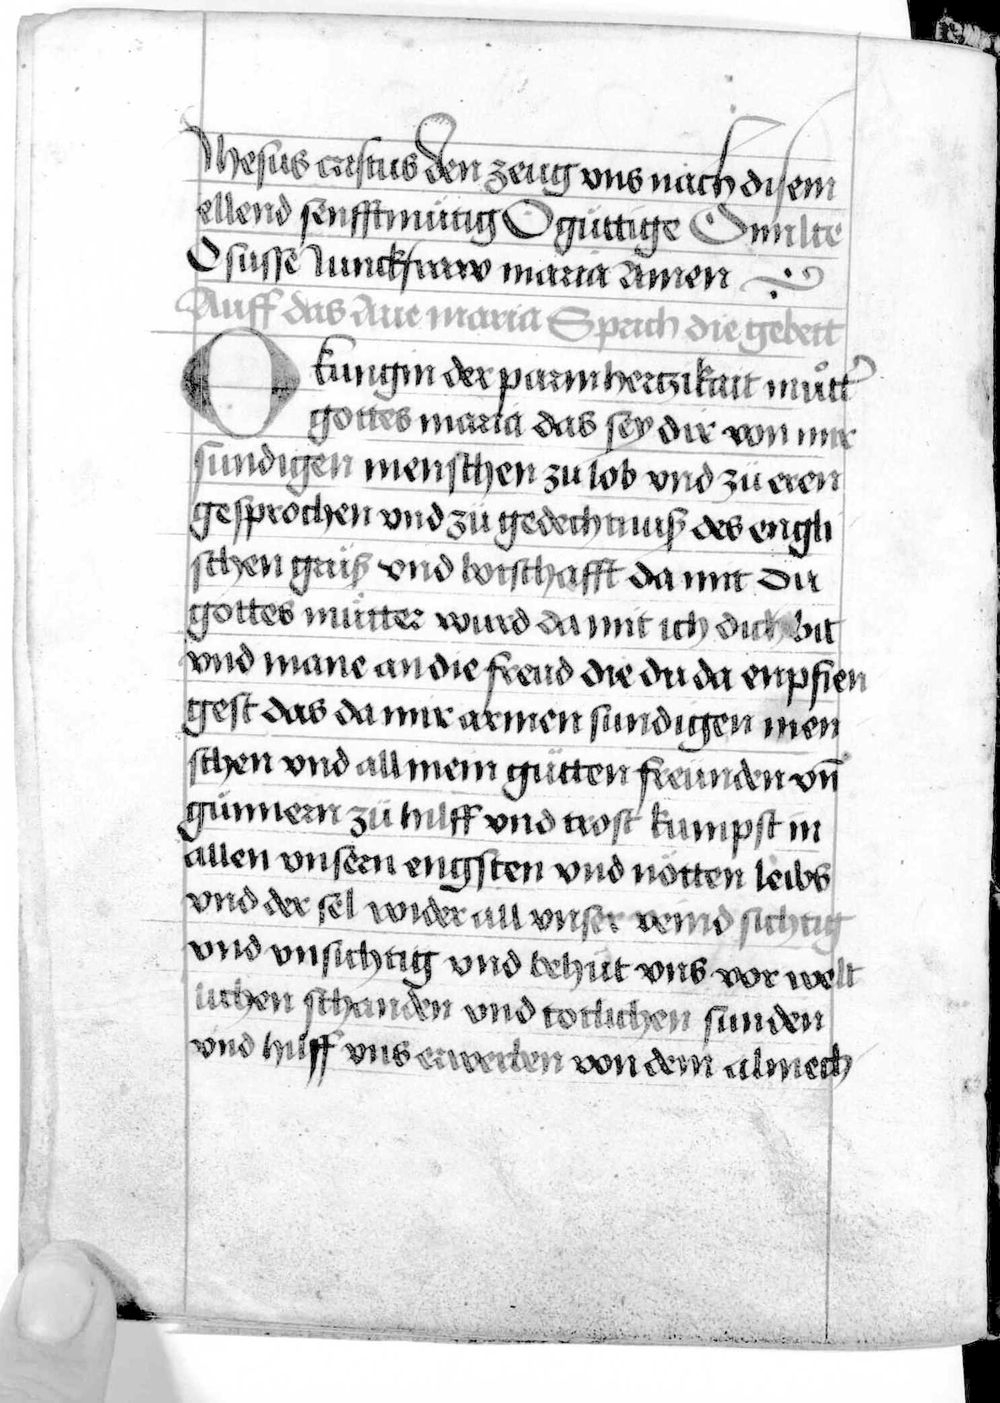 Jhesus cristus den zeug vns nach disem
ellend senfftmütig O güttige O milte
O süsse Junckfraw maria Amen
Auff das Aue maria Sprich die gebett
O kungin der parmhertzikait můtt͛
gottes maria das sey dir von mir
sundigen menschen zu lob vnd zü eren
gesprochen vnd zü gedechtnuß des engli
schen grüß vnd botschafft da mit du
gottes mütter wurd da mit ich dich bit
vnd mane an die freud die du da enpfien
gest das da mir armen sundigen men
schen vnd all mein gütten freünden vn̄
günnern zü hilff vnd trost kumpst in
allen vnsern engsten vnd nötten leibs
vnd der sel wider all vnser veind sichtig
vnd vnsichtig vnd behüt vns vor welt
lichen schanden vnd totlichen sunden
vnd hilff vns erwerben von dem almech